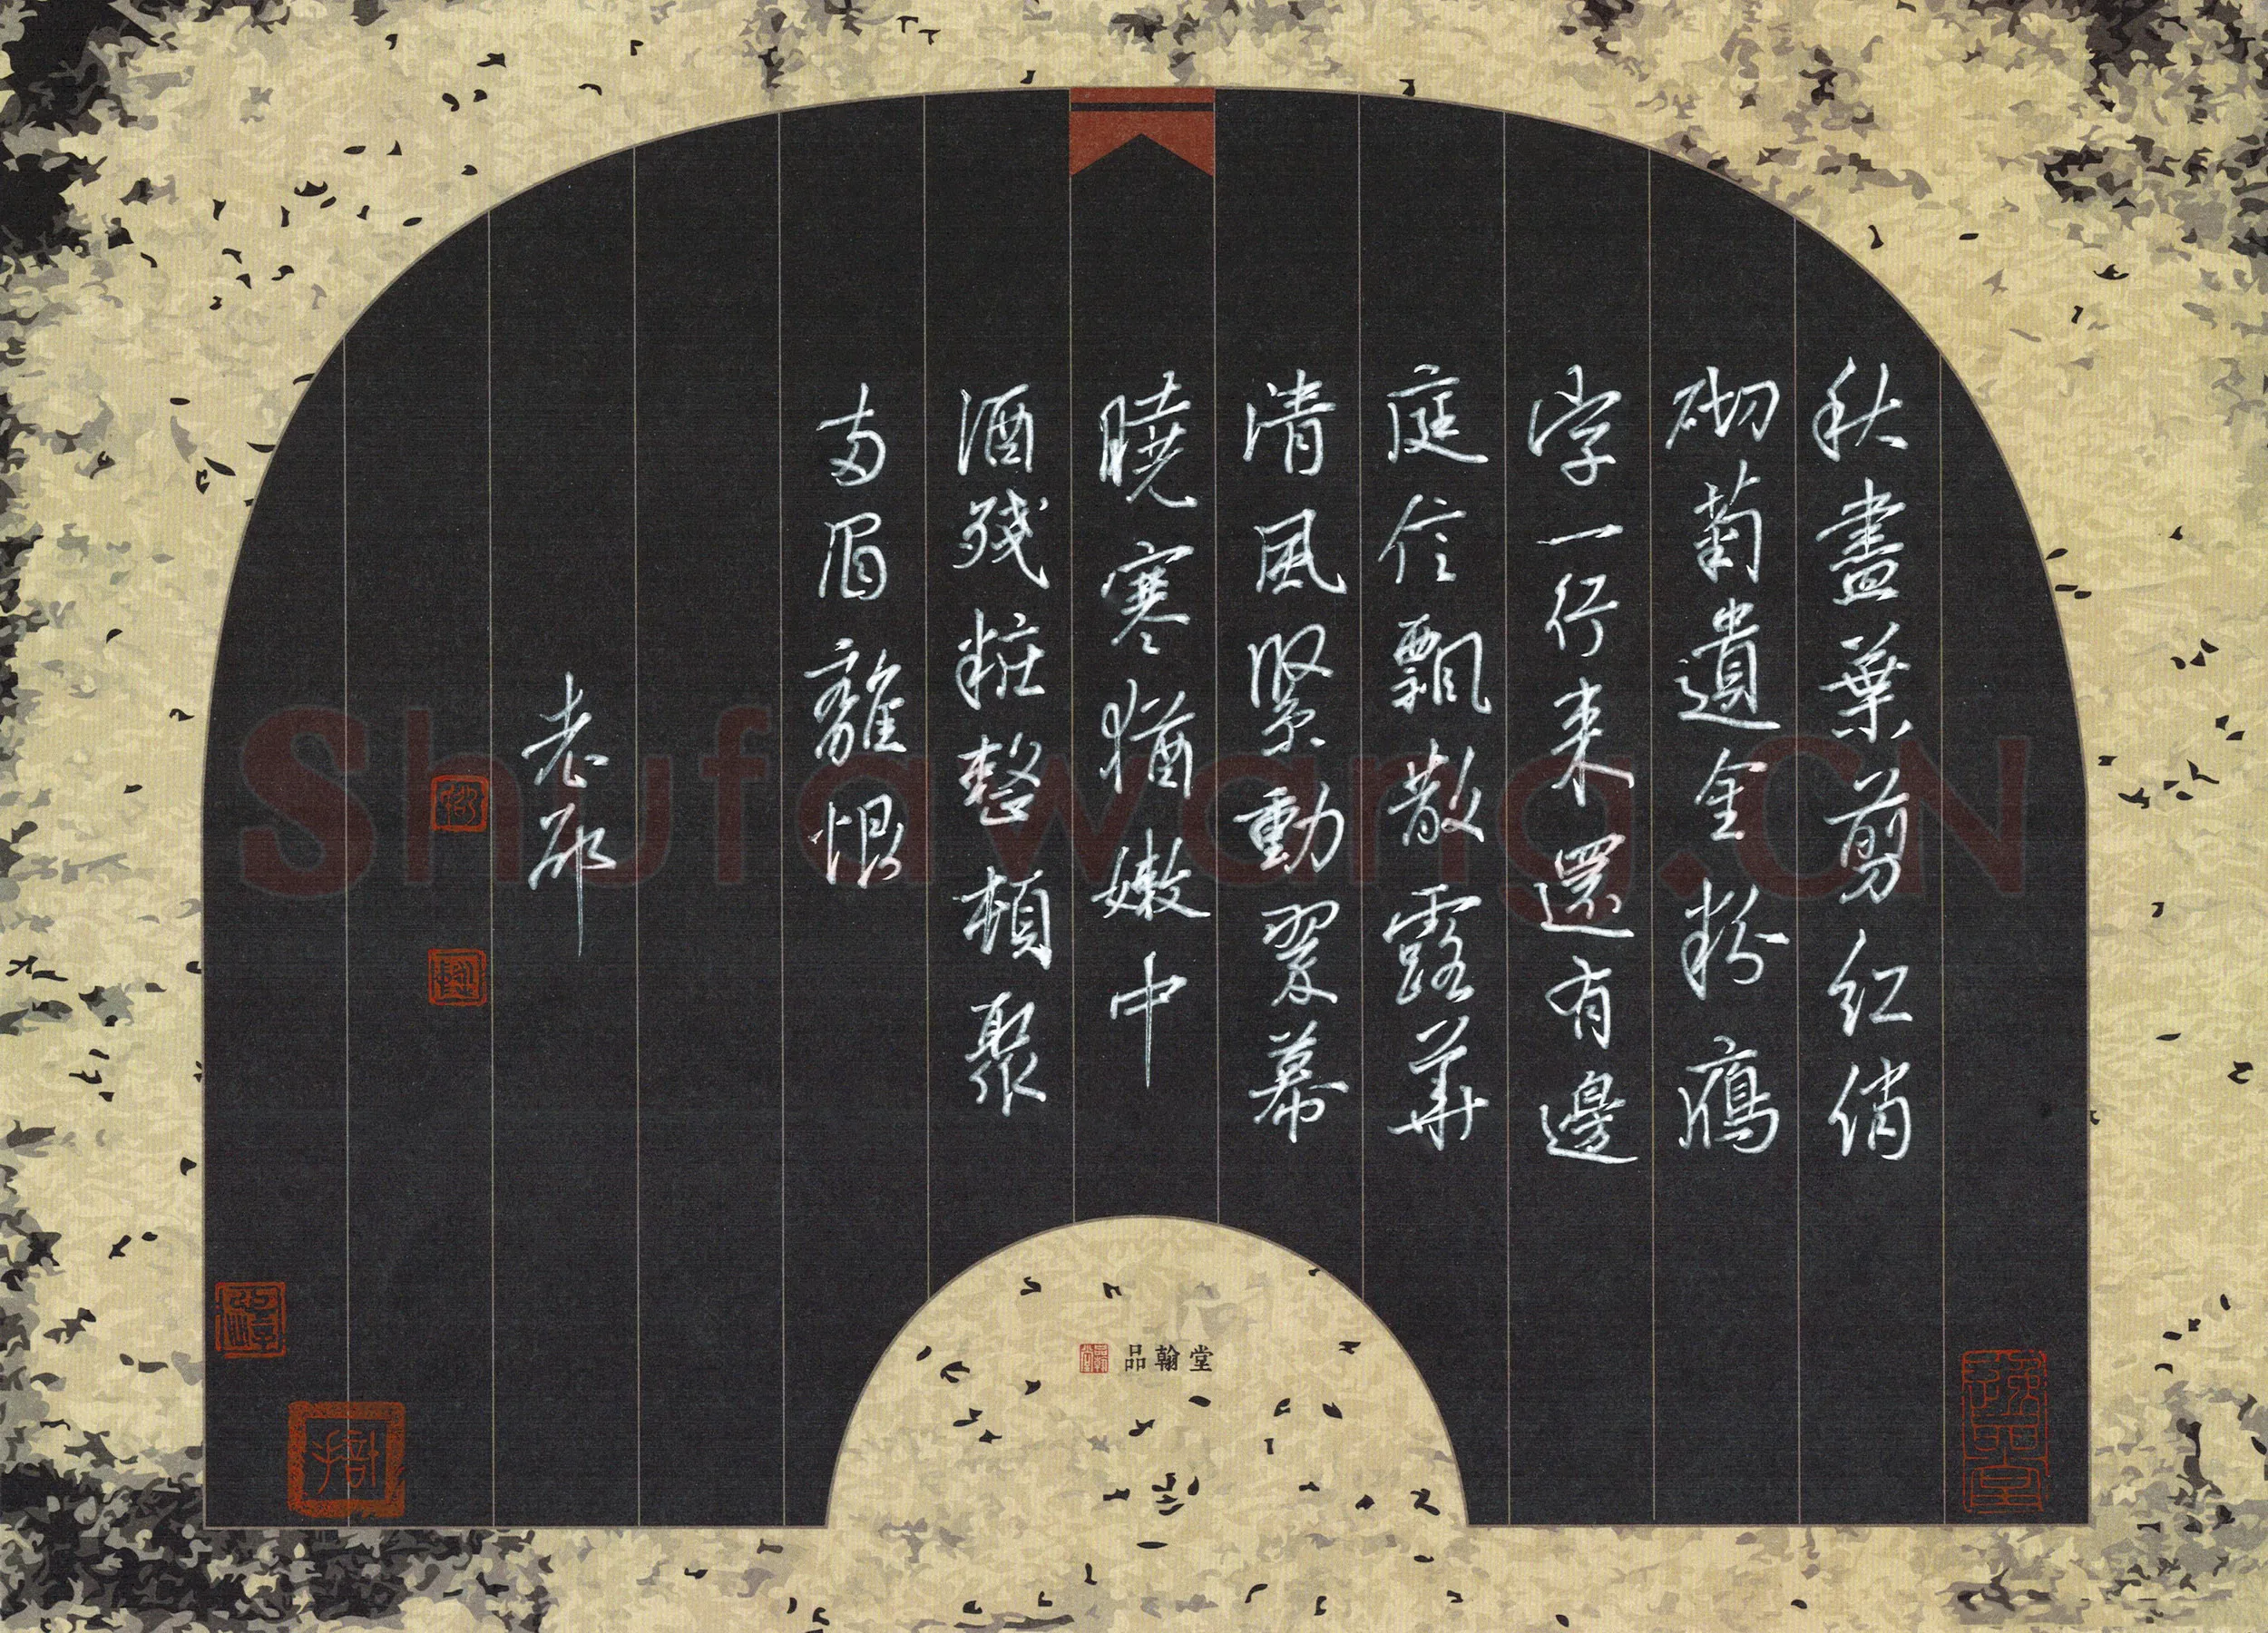 秋盡葉剪紅綃
砌菊遺金粉鴈
字一行来還有邊
庭信飄散露華
清風緊動翠幕
曉寒猶嫩中
酒殘粧整頓聚
兩眉離恨
老邵
品翰堂
Shufawang.CN